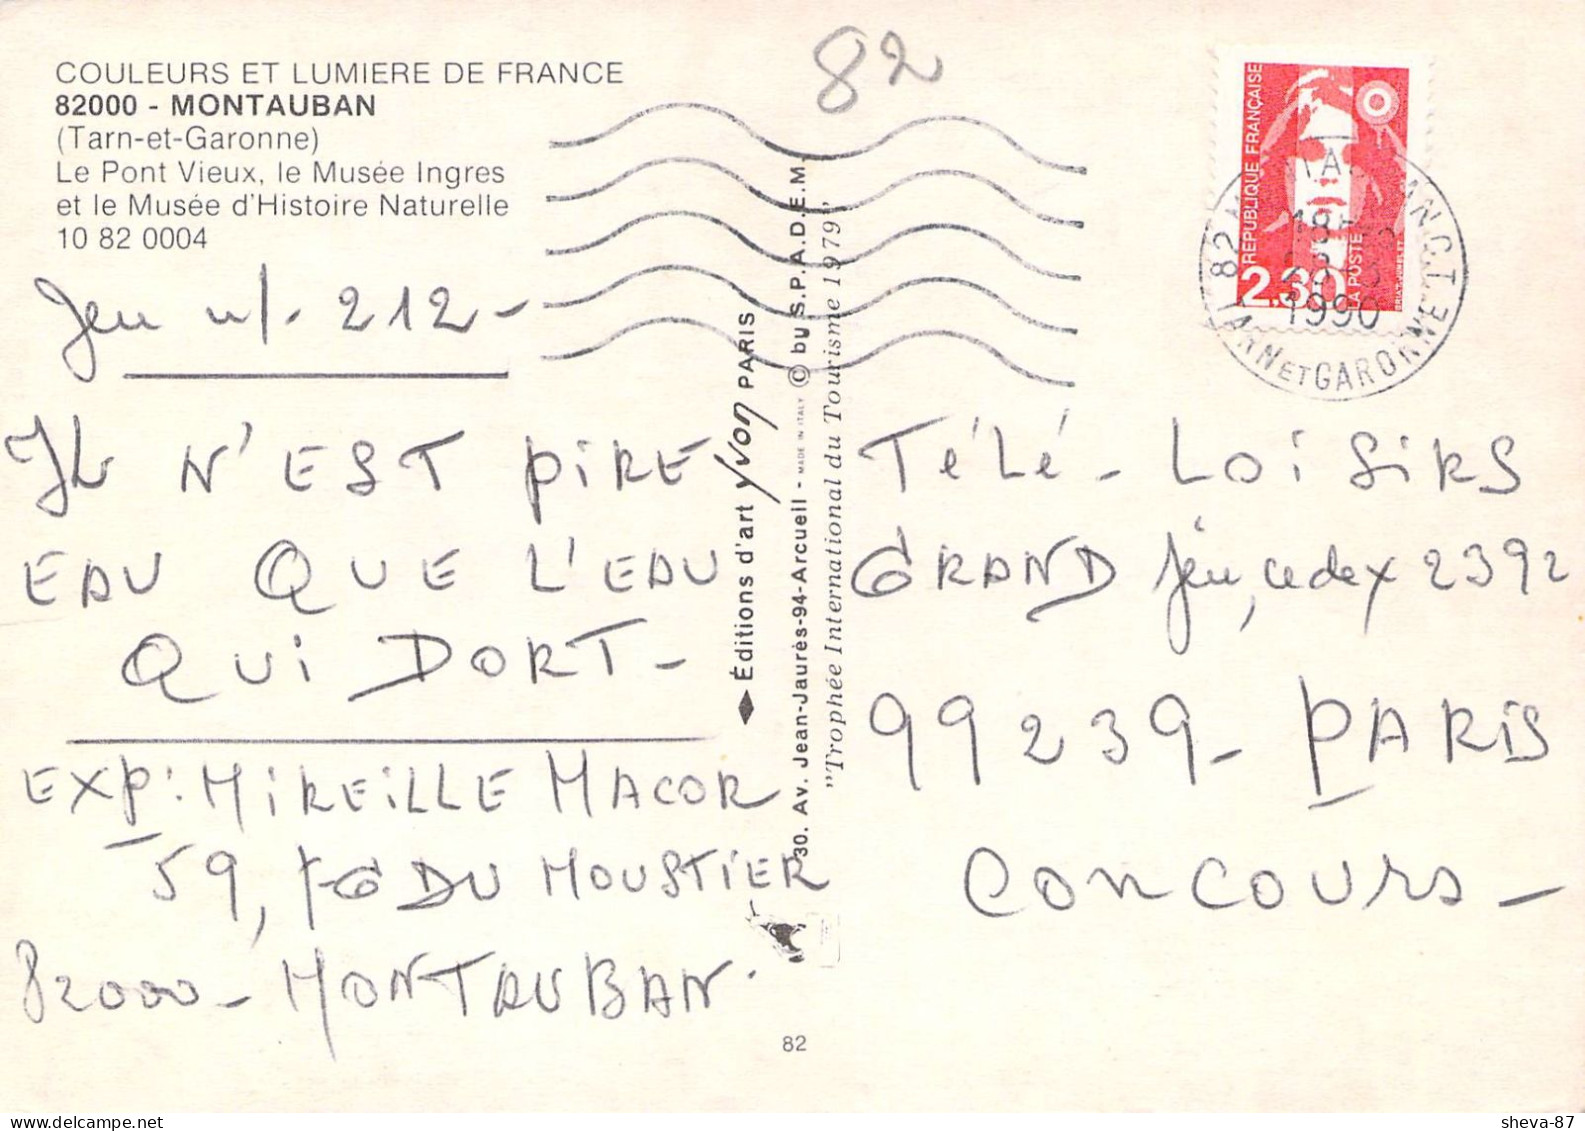 COULEURS ET LUMIERE DE FRANCE
82000 - MONTAUBAN
(Tarn-et-Garonne)
Le Pont Vieux, le Musée Ingres
et le Musée d'Histoire Naturelle
10 82 0004
82
RÉPUBLIQUE FRANÇAISE
LA POSTE
2,30
82
1990
TARN ET GARONNE
Jeu n/. 212-
IL N'EST PIRE
EAU QUE L'EAU
QUI DORT-
EXP: MIREILLE MACOR
59, FG DU MOUSTIER
82000 - MONTAUBAN.
Éditions d'art Yvon PARIS
30. Av. Jean-Jaurès-94-Arcueil - MADE IN ITALY © by S.P.A.D.E.M.
"Trophée International du Tourisme 1979"
TéLé - LoiSiRS
GRAND Jeu, cedex 2392
99239 - PARIS
CONCOURS -
82
sheva-87